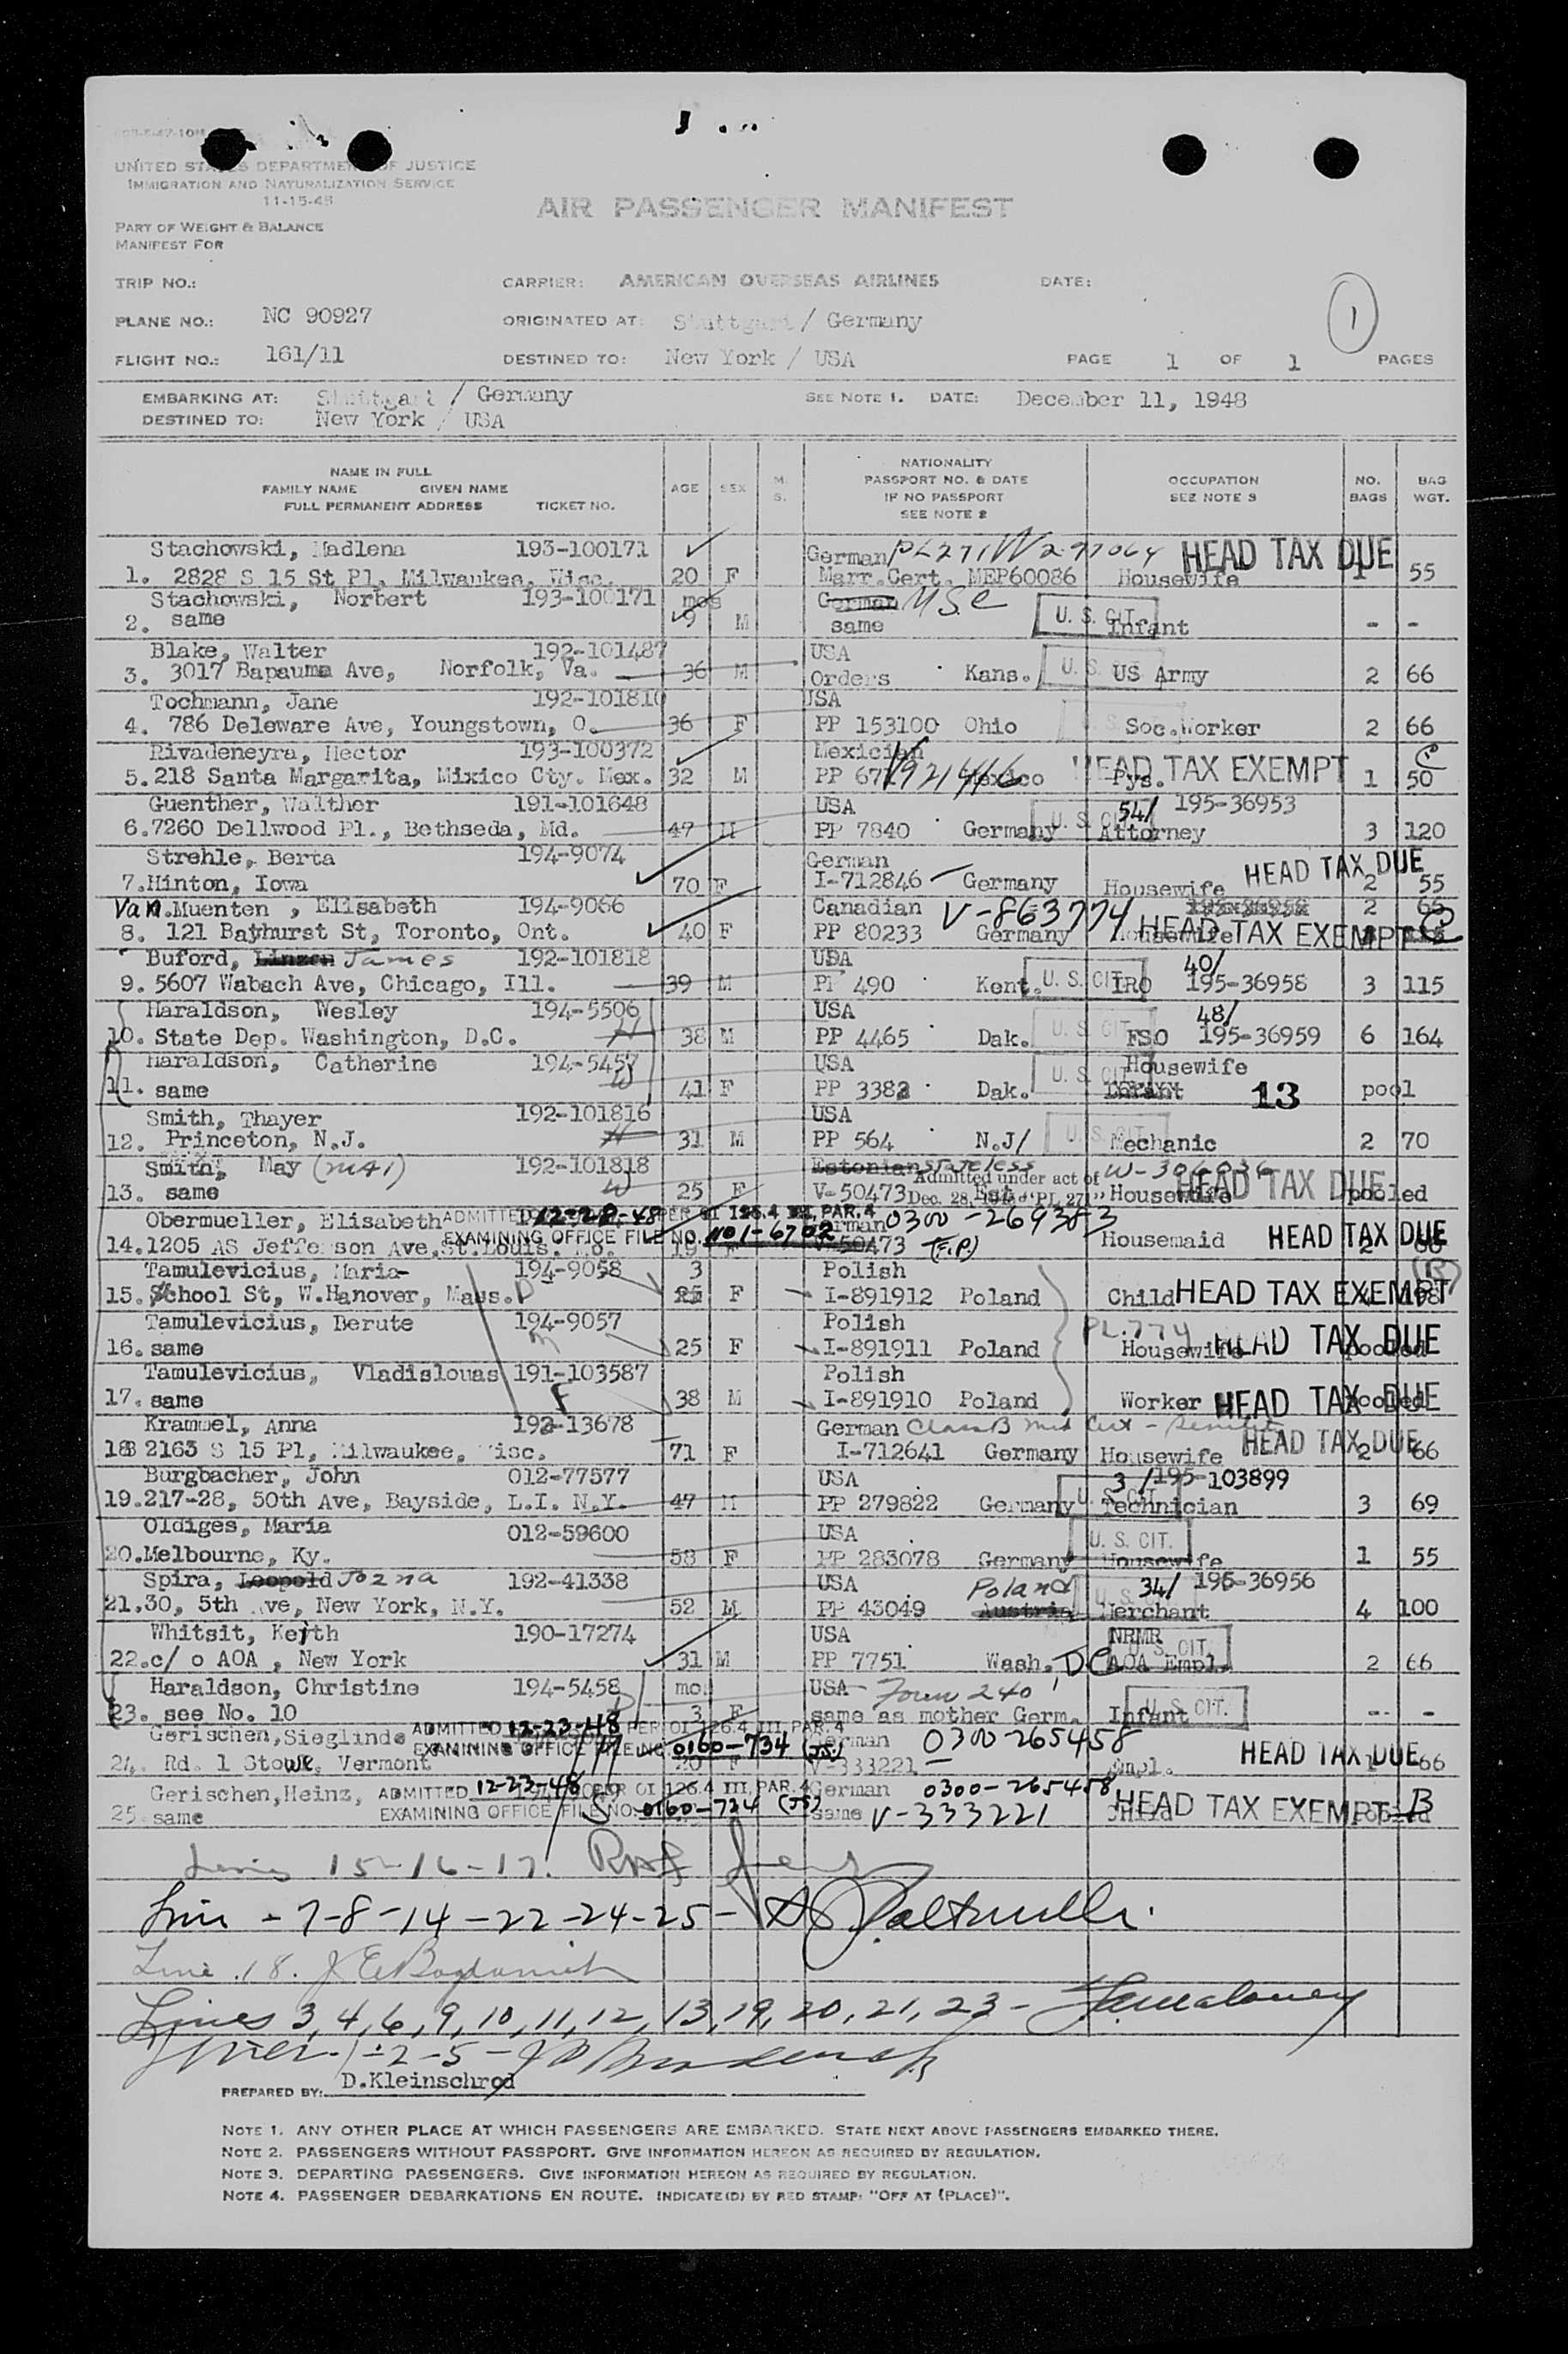 UNITED STATES DEPARTMENT OF JUSTICE
IMMIGRATION AND NATURALIZATION SERVICE
11-15-48
AIR PASSENGER MANIFEST
PART OF WEIGHT & BALANCE
MANIFEST FOR
TRIP NO.: CARRIER: AMERICAN OVERSEAS AIRLINES DATE:
1
PLANE NO.: NC 90927 ORIGINATED AT: Stuttgart / Germany
FLIGHT NO.: 161/11 DESTINED TO: New York / USA PAGE 1 OF 1 PAGES
EMBARKING AT: Stuttgart / Germany SEE NOTE 1. DATE: December 11, 1948
DESTINED TO: New York / USA
NAME IN FULL
FAMILY NAME GIVEN NAME
FULL PERMANENT ADDRESS TICKET NO.
AGE SEX M. S.
NATIONALITY
PASSPORT NO. & DATE
IF NO PASSPORT
SEE NOTE 2
OCCUPATION
SEE NOTE 3
NO. BAGS
BAG WGT.
Stachowski, Madlena 193-100171 German PL271 HEAD TAX DUE
1. 2828 S 15 St Pl. Milwaukee, Wisc. 20 F Marr.Cert. MEP60086 Housewife 1 55
Stachowski, Norbert 193-100171 mos German USC U. S. CIT.
2. same 9 M same Infant - -
Blake, Walter 192-101487 USA
3. 3017 Bapaume Ave, Norfolk, Va. 36 M Orders Kans. U. S. US Army 2 66
Tochmann, Jane 192-101810 USA
4. 786 Deleware Ave, Youngstown, O. 36 F PP 153100 Ohio Soc.Worker 2 66
Rivadeneyra, Hector 193-100372 Mexician HEAD TAX EXEMPT C
5. 218 Santa Margarita, Mixico Cty. Mex. 32 M PP V921416 Mexico Pys. 1 50
Guenther, Walther 191-101648 USA 54/ 195-36953
6. 7260 Dellwood Pl., Bethseda, Md. 47 M PP 7840 Germany U. S. CIT Attorney 3 120
Strehle, Berta 194-9074 German HEAD TAX DUE
7. Hinton, Iowa 70 F I-712846 Germany Housewife 2 55
Van.Muenten , Elisabeth 194-9066 Canadian V-863774 195-36958 2 65
8. 121 Bayhurst St, Toronto, Ont. 40 F PP 80233 Germany Housewife HEAD TAX EXEMPT
Buford, Linzen James 192-101818 USA 40/
9. 5607 Wabach Ave, Chicago, Ill. 39 M PP 490 Kent. U. S. CIT IRO 195-36958 3 115
Haraldson, Wesley 194-5506 USA 48/
10. State Dep. Washington, D.C. H 38 M PP 4465 Dak. U. S. CIT FSO 195-36959 6 164
Haraldson, Catherine 194-5457 USA U. S. CIT Housewife
11. same W 41 F PP 3382 Dak. Infant 13 pool
Smith, Thayer 192-101816 USA
12. Princeton, N.J. H 31 M PP 564 N.J/ U. S. CIT. Mechanic 2 70
Smith, May (M41) 192-101818 Estonian Stateless Admitted under act of W-306036 HEAD TAX DUE
13. same W 25 F V-50473 Dec. 28, 1945 "PL 271" Housewife pooled
Obermueller, Elisabeth ADMITTED 12-28-48 PER OI 126.4 III, PAR. 4 German 0300-269383
14. 1205 AS Jefferson Ave.St.Louis. Mo. EXAMINING OFFICE FILE NO. 1101-6702 19 F V-50473 (F.P.) Housemaid HEAD TAX DUE 2 66
Tamulevicius, Maria 194-9058 3 Polish (B)
15. School St, W.Hanover, Mass. D 25 F I-891912 Poland Child HEAD TAX EXEMPT 4 198
Tamulevicius, Berute 194-9057 Polish PL.774
16. same m 25 F I-891911 Poland Housewife HEAD TAX DUE pooled
Tamulevicius, Vladislouas 191-103587 Polish
17. same F 38 M I-891910 Poland Worker HEAD TAX DUE pooled
Kramuel, Anna 192-13678 German Class B Med Cert - Senility
18. 2163 S 15 Pl, Milwaukee, Wisc. 71 F I-712641 Germany Housewife HEAD TAX DUE 2 66
Burgbacher, John 012-77577 USA 3 /195-103899
19. 217-28, 50th Ave, Bayside, L.I. N.Y. 47 M PP 279822 Germany U. S. CIT. Technician 3 69
Oldiges, Maria 012-59600 USA U. S. CIT.
20. Melbourne, Ky. 58 F PP 283078 Germany Housewife 1 55
Spira, Leopold Jozna 192-41338 USA Poland 34/ 195-36956
21. 30, 5th Ave, New York, N.Y. 52 M PP 43049 Austria Merchant 4 100
Whitsit, Keith 190-17274 USA NRMR
22. c/ o AOA , New York 31 M PP 7751 Wash. DC U. S. CIT. AOA Empl. 2 66
Haraldson, Christine 194-5458 mo. USA Form 240
23. see No. 10 3 F same as mother Germ. Infant U. S. CIT. -- -
Gerischen,Sieglinde ADMITTED 12-23-48 PER OI 126.4 III, PAR. 4 German 0300-265458
24. Rd. 1 Stowe, Vermont EXAMINING OFFICE FILE NO. 0160-734 (JS) 20 F V-333221 Empl. HEAD TAX DUE 1 66
Gerischen,Heinz, ADMITTED 12-23-48 PER OI 126.4 III, PAR. 4 German 0300-265458
25. same EXAMINING OFFICE FILE NO. 0160-734 (JS) same V-333221 Child HEAD TAX EXEMPT B pooled
Lines 15-16-17.
Lines - 7-8-14-22-24-25-
Line 18.
Lines 3,4,6,9,10,11,12,13,19,20,21,23-
Lines-1-2-5-
PREPARED BY: D.Kleinschrod
NOTE 1. ANY OTHER PLACE AT WHICH PASSENGERS ARE EMBARKED. STATE NEXT ABOVE PASSENGERS EMBARKED THERE.
NOTE 2. PASSENGERS WITHOUT PASSPORT. GIVE INFORMATION HEREON AS REQUIRED BY REGULATION.
NOTE 3. DEPARTING PASSENGERS. GIVE INFORMATION HEREON AS REQUIRED BY REGULATION.
NOTE 4. PASSENGER DEBARKATIONS EN ROUTE. INDICATE(D) BY RED STAMP: "OFF AT (PLACE)".